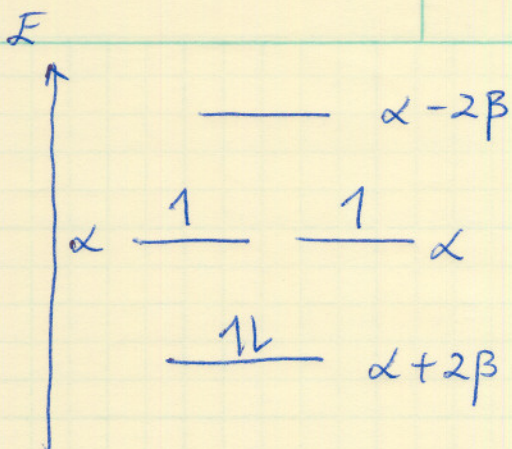 E
α - 2β
1 1
α α
1l
α + 2β